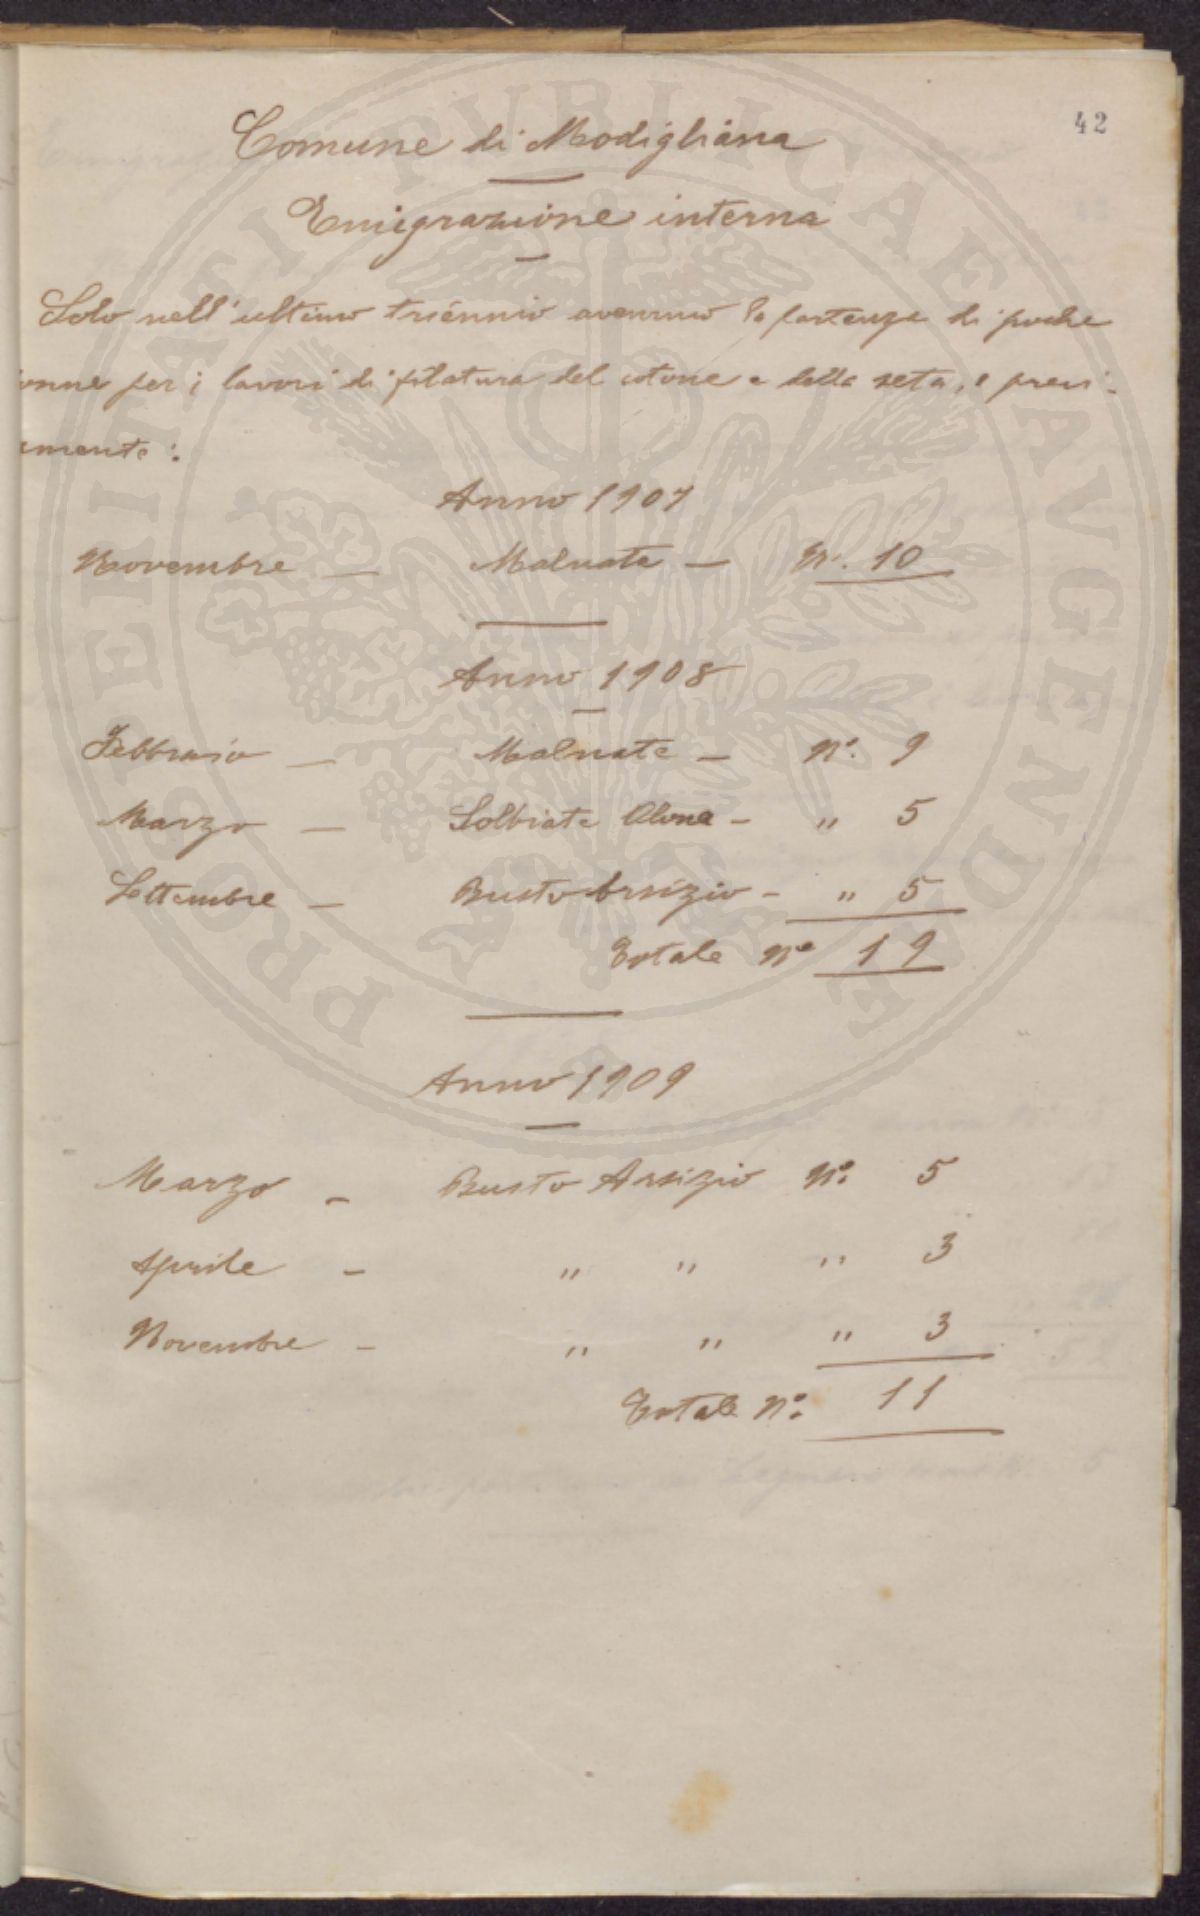 42
Comune di Modigliana
Emigrazione interna
Solo nell'ultimo triennio avennero le partenze di poche
onne per i lavori di filatura del cotone e della seta, e preci-
amente:
Anno 1907
Novembre — Malnate — N. 10
Anno 1908
Febbraio — Malnate — N°. 9
Marzo — Solbiate Olona — " 5
Settembre — Busto Arsizio — " 5
Totale N° 19
Anno 1909
Marzo — Busto Arsizio N°. 5
Aprile — " " " 3
Novembre — " " " 3
Totale N°. 11
PROSPERITATI PVBLICAE AVGENDAE